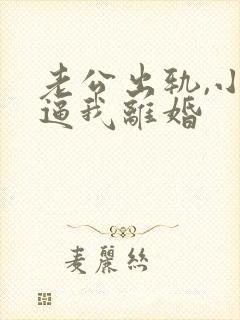 老公出轨,小
逼我離婚
麦麗絲